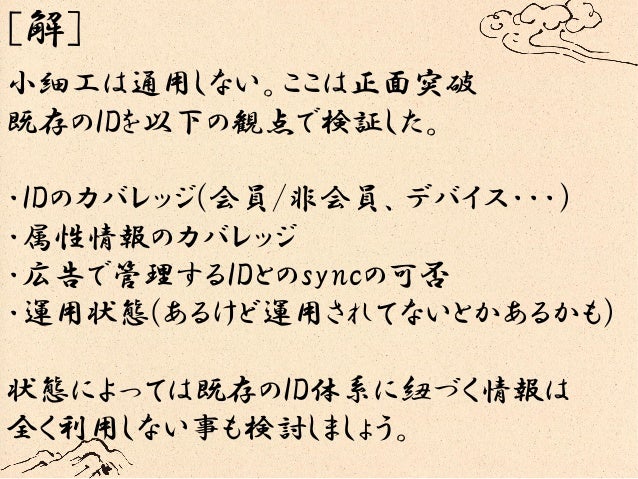 [解]
小細工は通用しない。ここは正面突破
既存のIDを以下の観点で検証した。
・IDのカバレッジ(会員/非会員、デバイス・・・)
・属性情報のカバレッジ
・広告で管理するIDとのsyncの可否
・運用状態(あるけど運用されてないとかあるかも)
状態によっては既存のID体系に紐づく情報は
全く利用しない事も検討しましょう。